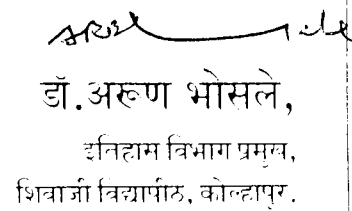 डॉ.अरूण भोसले,
इतिहास विभाग प्रमुख,
शिवाजी विद्यापीठ, कोल्हापूर.